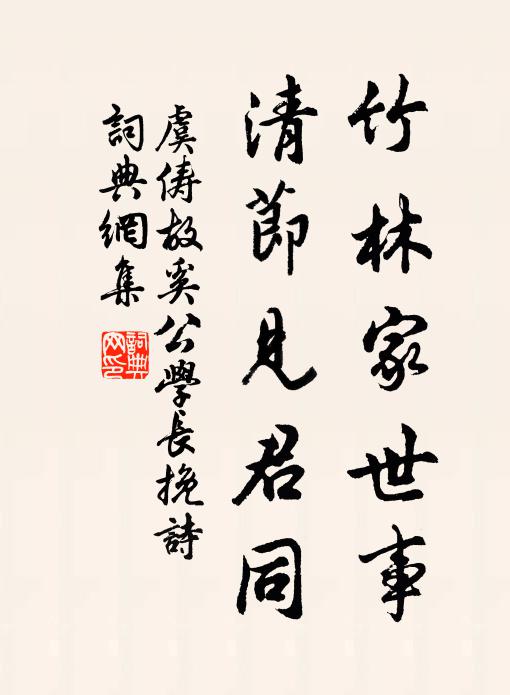 竹林家世事
清節見君同
虞俦故奚公學長挽詩
詞典網集
詞典网印